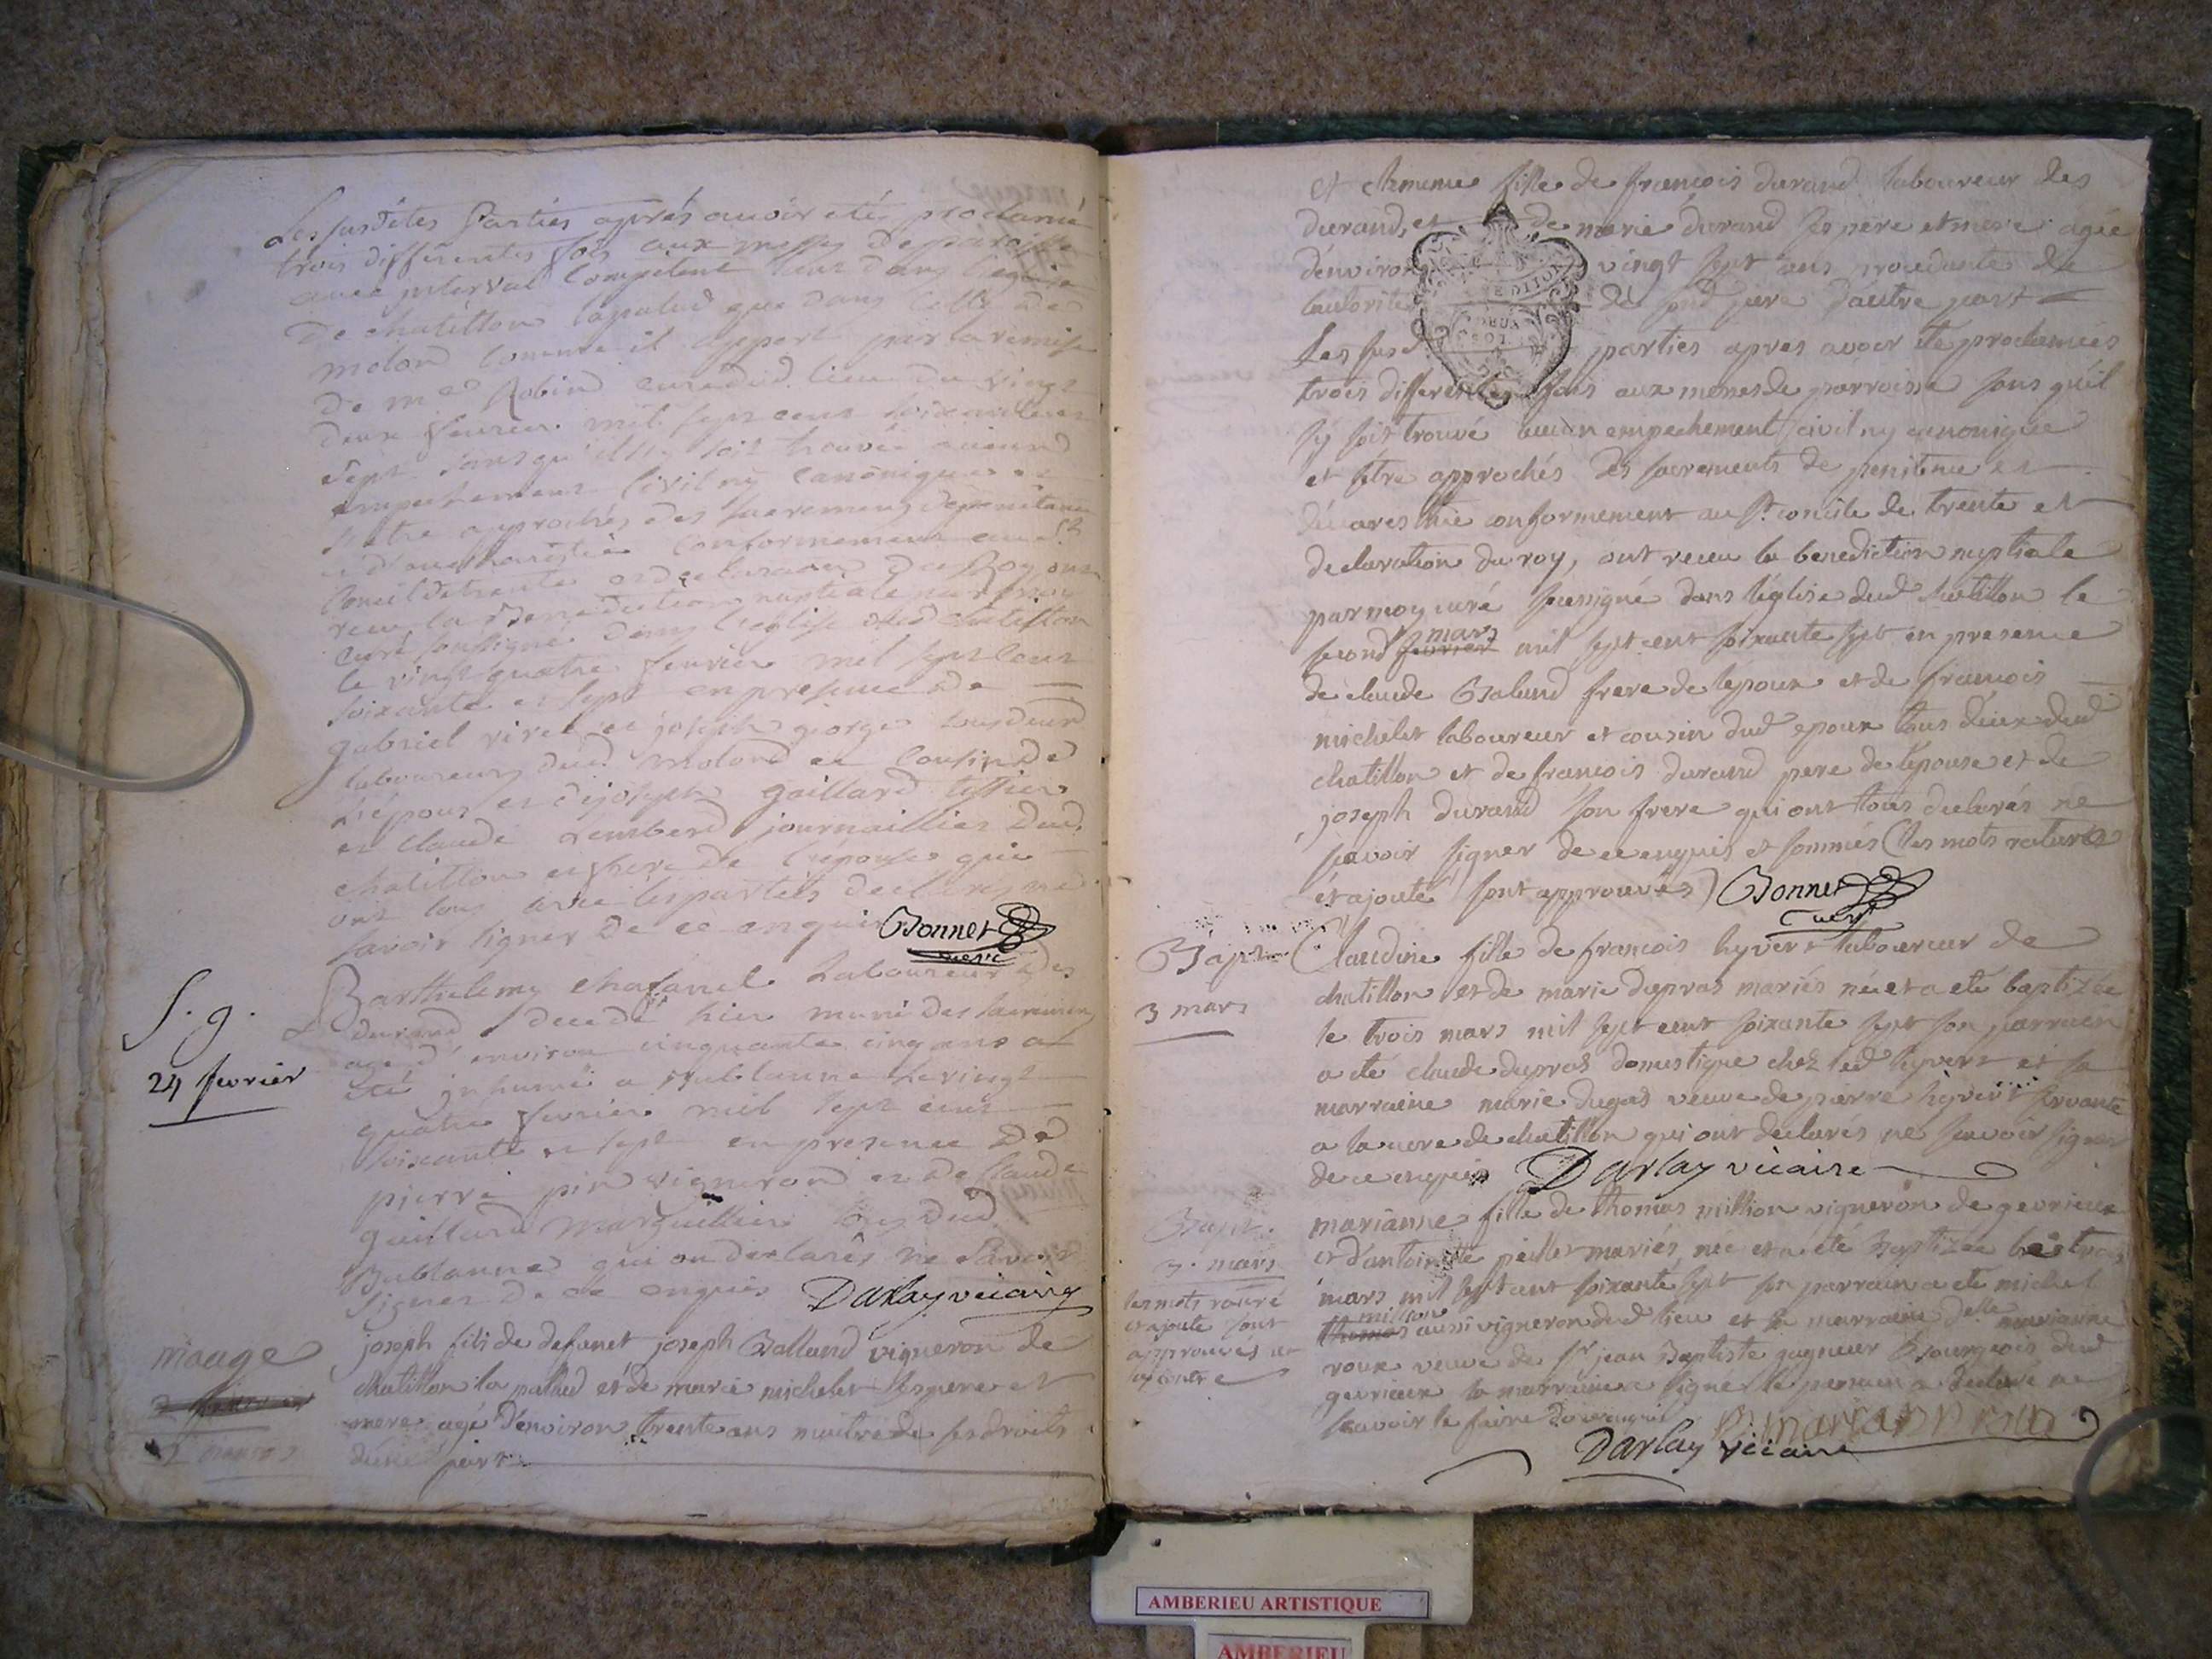 Les susdites Parties après avoir eté proclamé
trois differentes fois aux messes de paroisse
avec interval Competent tant dans l'eglise
De chatillon lapalud que dans Celle de
molon Comme il appert par la remise
De mr Robin curé dud. lieu du vingt
deux fevrier mil sept cent soixante et
sept sans qu'il s'y soit trouvé aucund
empechement Civil ny Canonique et
s'etre approchés des sacremens de penitence
et d'eucharistie Conformement au st
Concil de trente et declaration Du Roy ont
receu la Benediction nuptiale par moy
Curé soussigné dans l'eglise dud chatillon
le vingt quatre fevrier mil sept cent
soixante et sept en presence de
gabriel vivet et joseph george tous deux
laboureurs dud molond et Cousin de
L'époux et de joseph gaillard tissier
et Claude Lembert journaillier Dud.
chatillon et frere de l'epouse qui
ont tous avec les parties declarés ne
savoir signer De ce enquis Bonnet
curé
S. g.
24 fevrier
Barthelemy chafanel Laboureur des
durand decedé hier muni des sacremens
agé d'environ cinquante cinq ans a
été inhumé a Bublanne le vingt
quatre fevrier mil sept cent
soixante et sept en presence De
pierre pin vigneron et de Claude
guillard marguillier tous dud
Bublanne qui on declarés ne savoir
signer De ce enquis Darlay vicaire
mariage
2 fevrier
2 mars
joseph fils de defunct joseph Balland vigneron de
chatillon la pallud et de marie michelet ses pere et
mere agé d'environ trente ans maitre de ses droits
d'une part
et clemence fille de francois durand laboureur des
durand, et de marie durand ses pere et mere agée
d'environ vingt sept ans procedante de
l'autorité de sond pere d'autre part
Les susd parties apres avoir eté proclamées
trois differentes fois aux messes de parroisse sans qu'il
s'y soit trouvé aucun empechement civil ny canonique
et s'etre approchés des sacrements de penitence et
d'eucaristie conformement au st concile de trente et
declaration du roy, ont receu la benediction nuptiale
par moy curé soussigné dans l'église dud chatillon le
mars
second fevrier mil sept cent soixante sept en presence
de claude Baland frere de l'epoux et de francois
michelet laboureur et cousin dud epoux tous deux dud
chatillon et de francois durand pere de l'epouse et de
joseph durand son frere qui ont tous declarés ne
scavoir signer de ce enquis et sommés (les mots raturés
et ajouté sont approuvés) Bonnet
curé
Bapt
3 mars
Claudine fille de francois hyvert laboureur de
chatillon et de marie dupras mariés née et a eté baptizée
le trois mars mil sept cent soixante sept son parrain
a eté claude dupras domestique chez led hyvert et sa
marraine marie dugas veuve de pierre hyvert servante
a la cure de chatillon qui ont declarés ne scavoir signer
de ce enquis Darlay vicaire
Bapt.
3. mars
les mots raturé
et ajouté sont
approuvés
marianne fille de thomas million vigneron de gevrieux
et d'antoinette peillet mariés, née et a été Baptizée le trois
mars mil sept cent soixante sept son parrain a eté michel
million
thomas aussi vigneron dud lieu et sa marraine delle marianne
roux veuve de sr jean Baptiste gagneur Bourgeois dud
gevrieux la marraine a signé le parrain a declaré ne
scavoir le faire de ce enquis
Darlay vicaire
AMBERIEU ARTISTIQUE
AMBERIEU